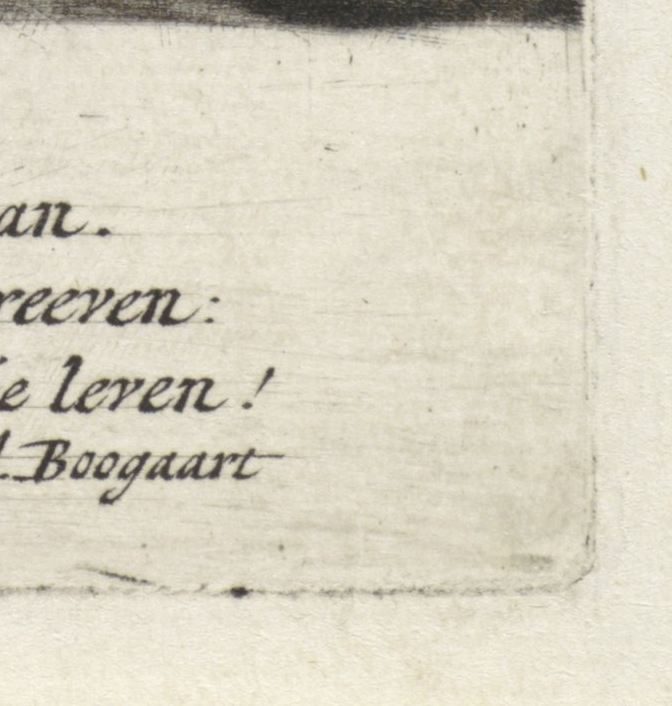 an.
reeven:
e leven!
. Boogaart